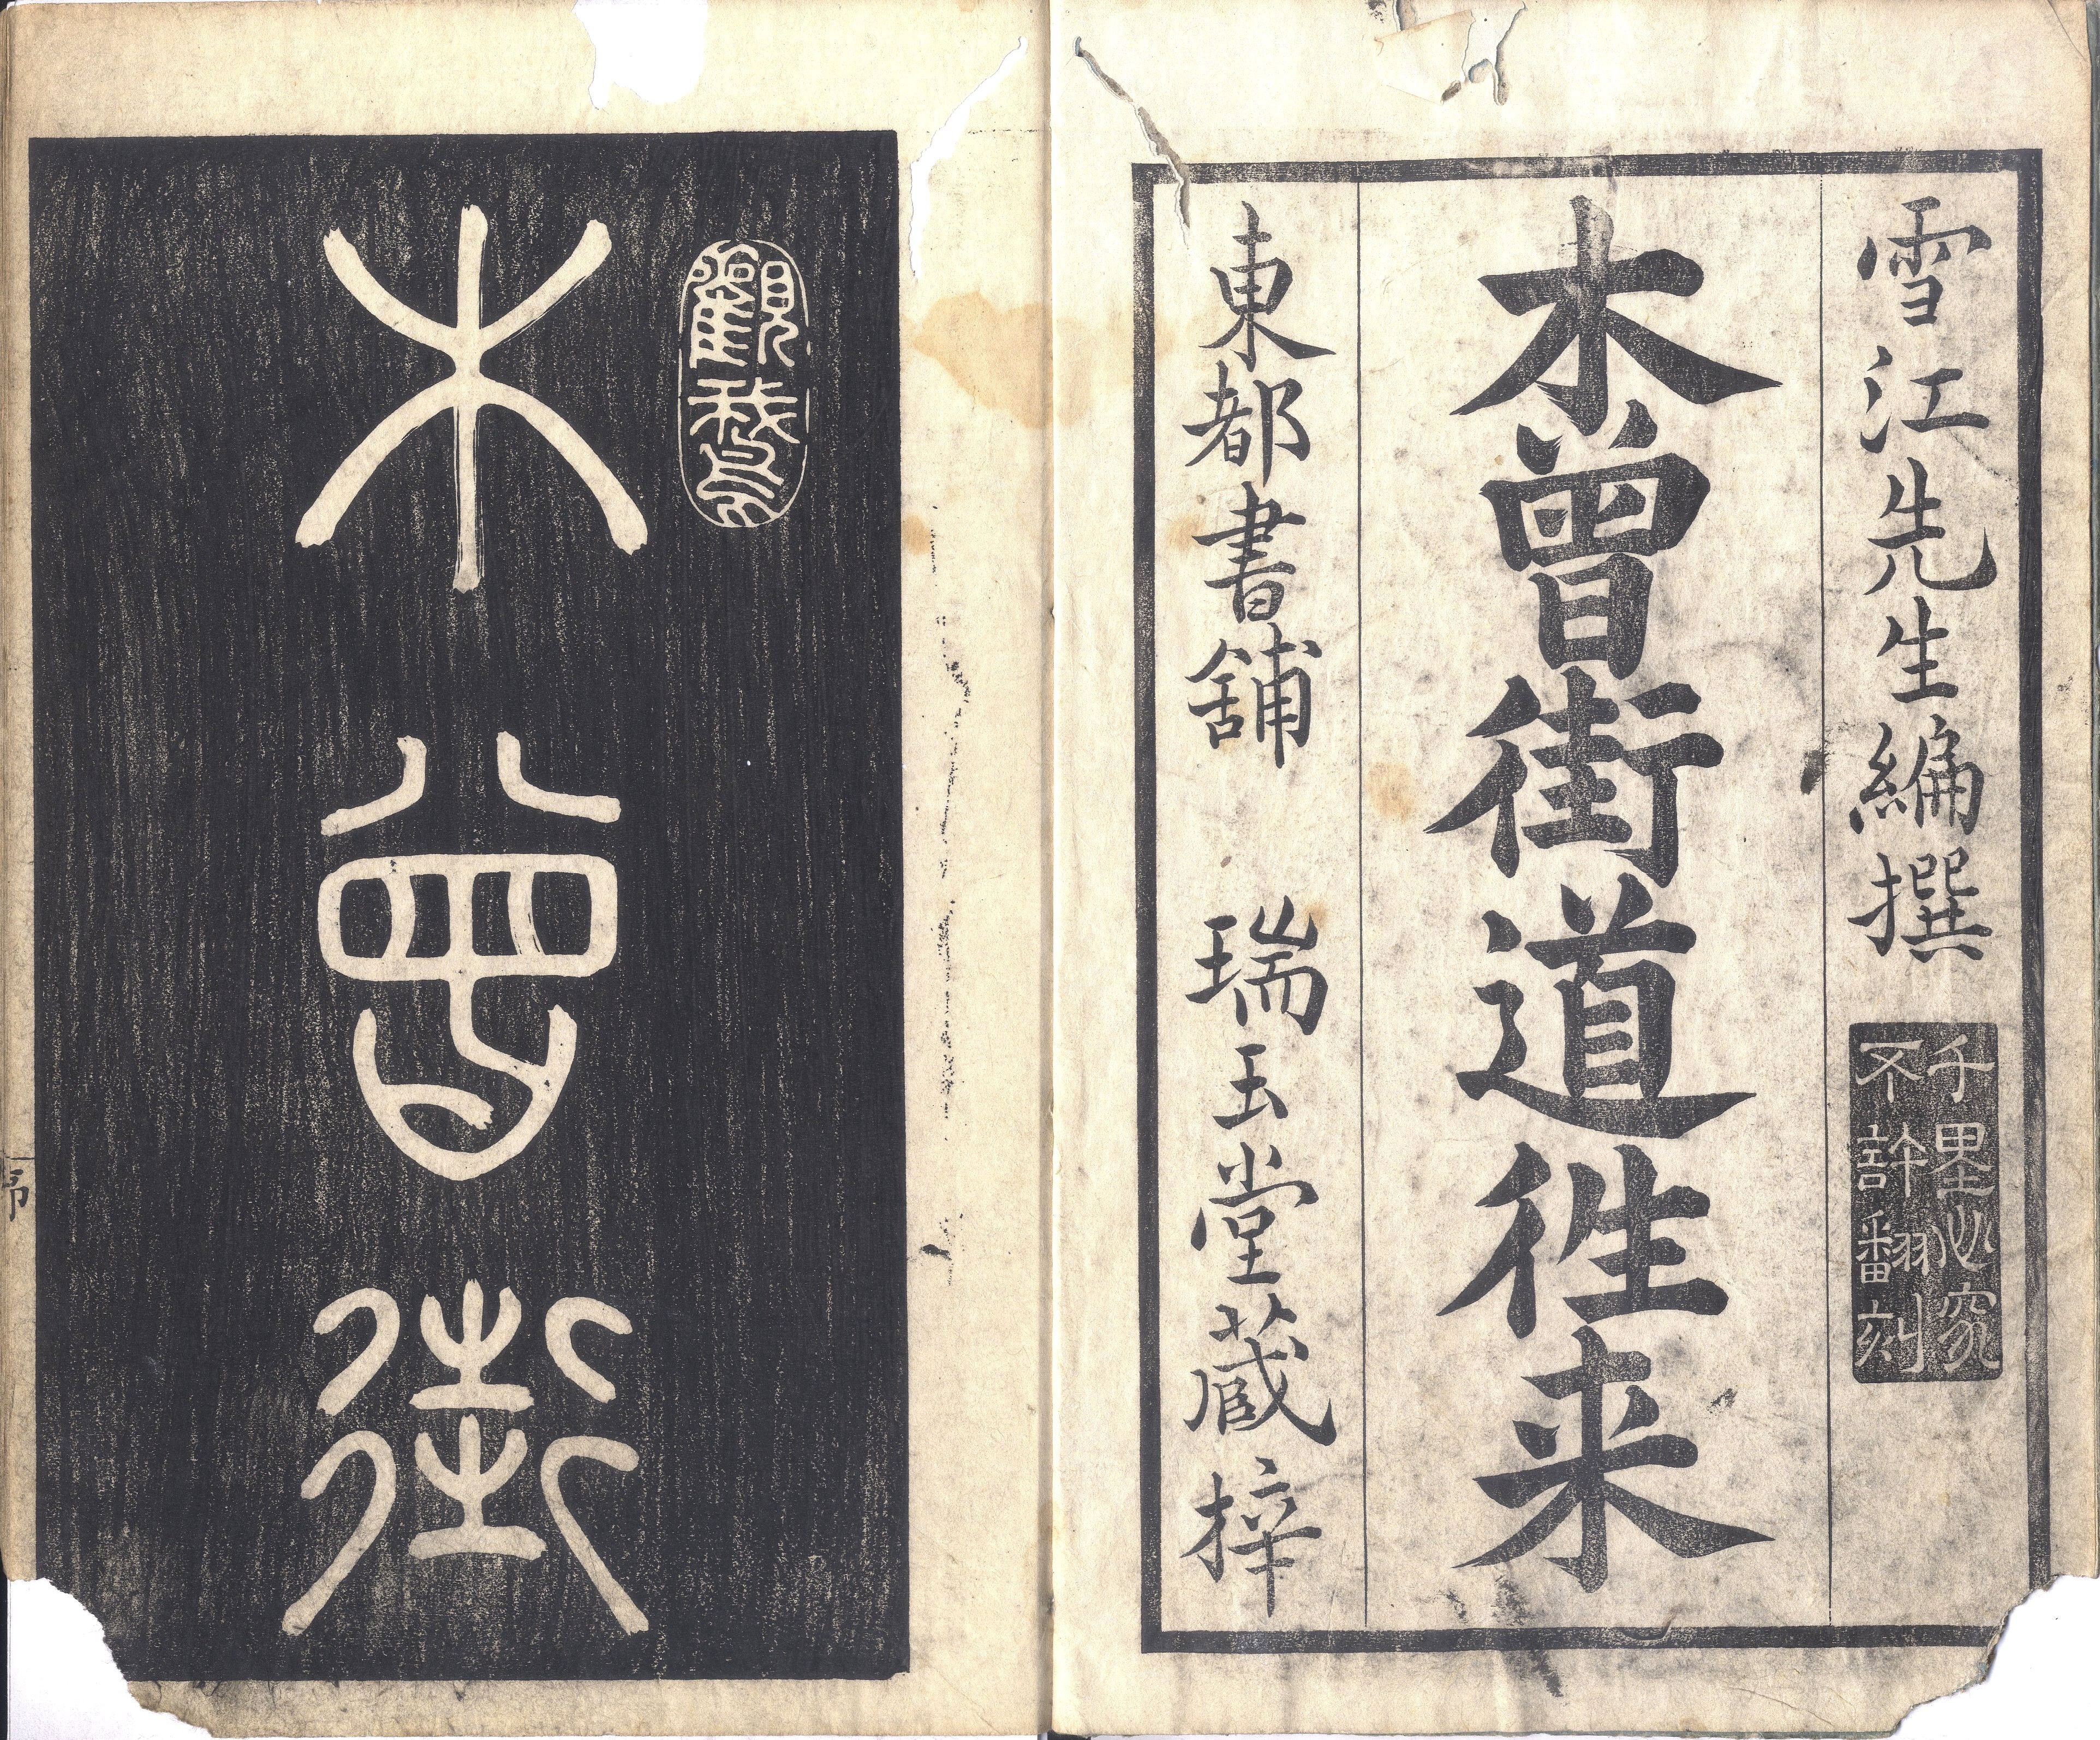 雪江先生編撰
千里必究
不許翻刻
木曽街道往来
東都書舗 瑞玉堂蔵梓
木曽街